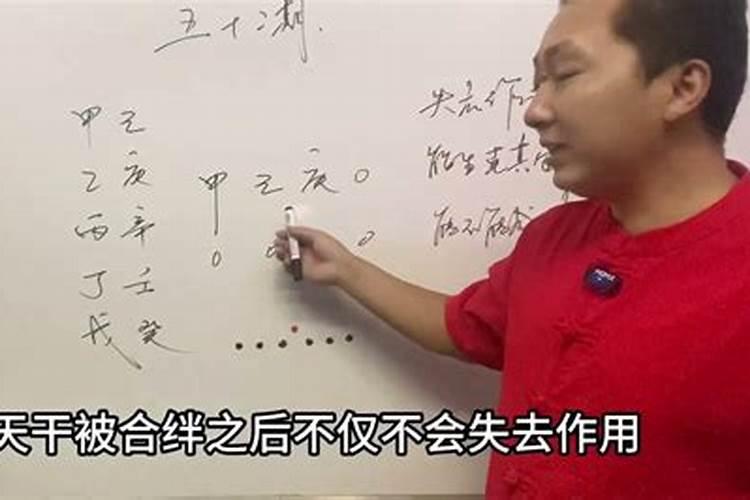 五十二期.
甲己
乙庚
丙辛
丁壬
戊癸
甲己庚0
0 0 0
失去作
能生克其
能不能成
天干被合绊之后不仅不会失去作用